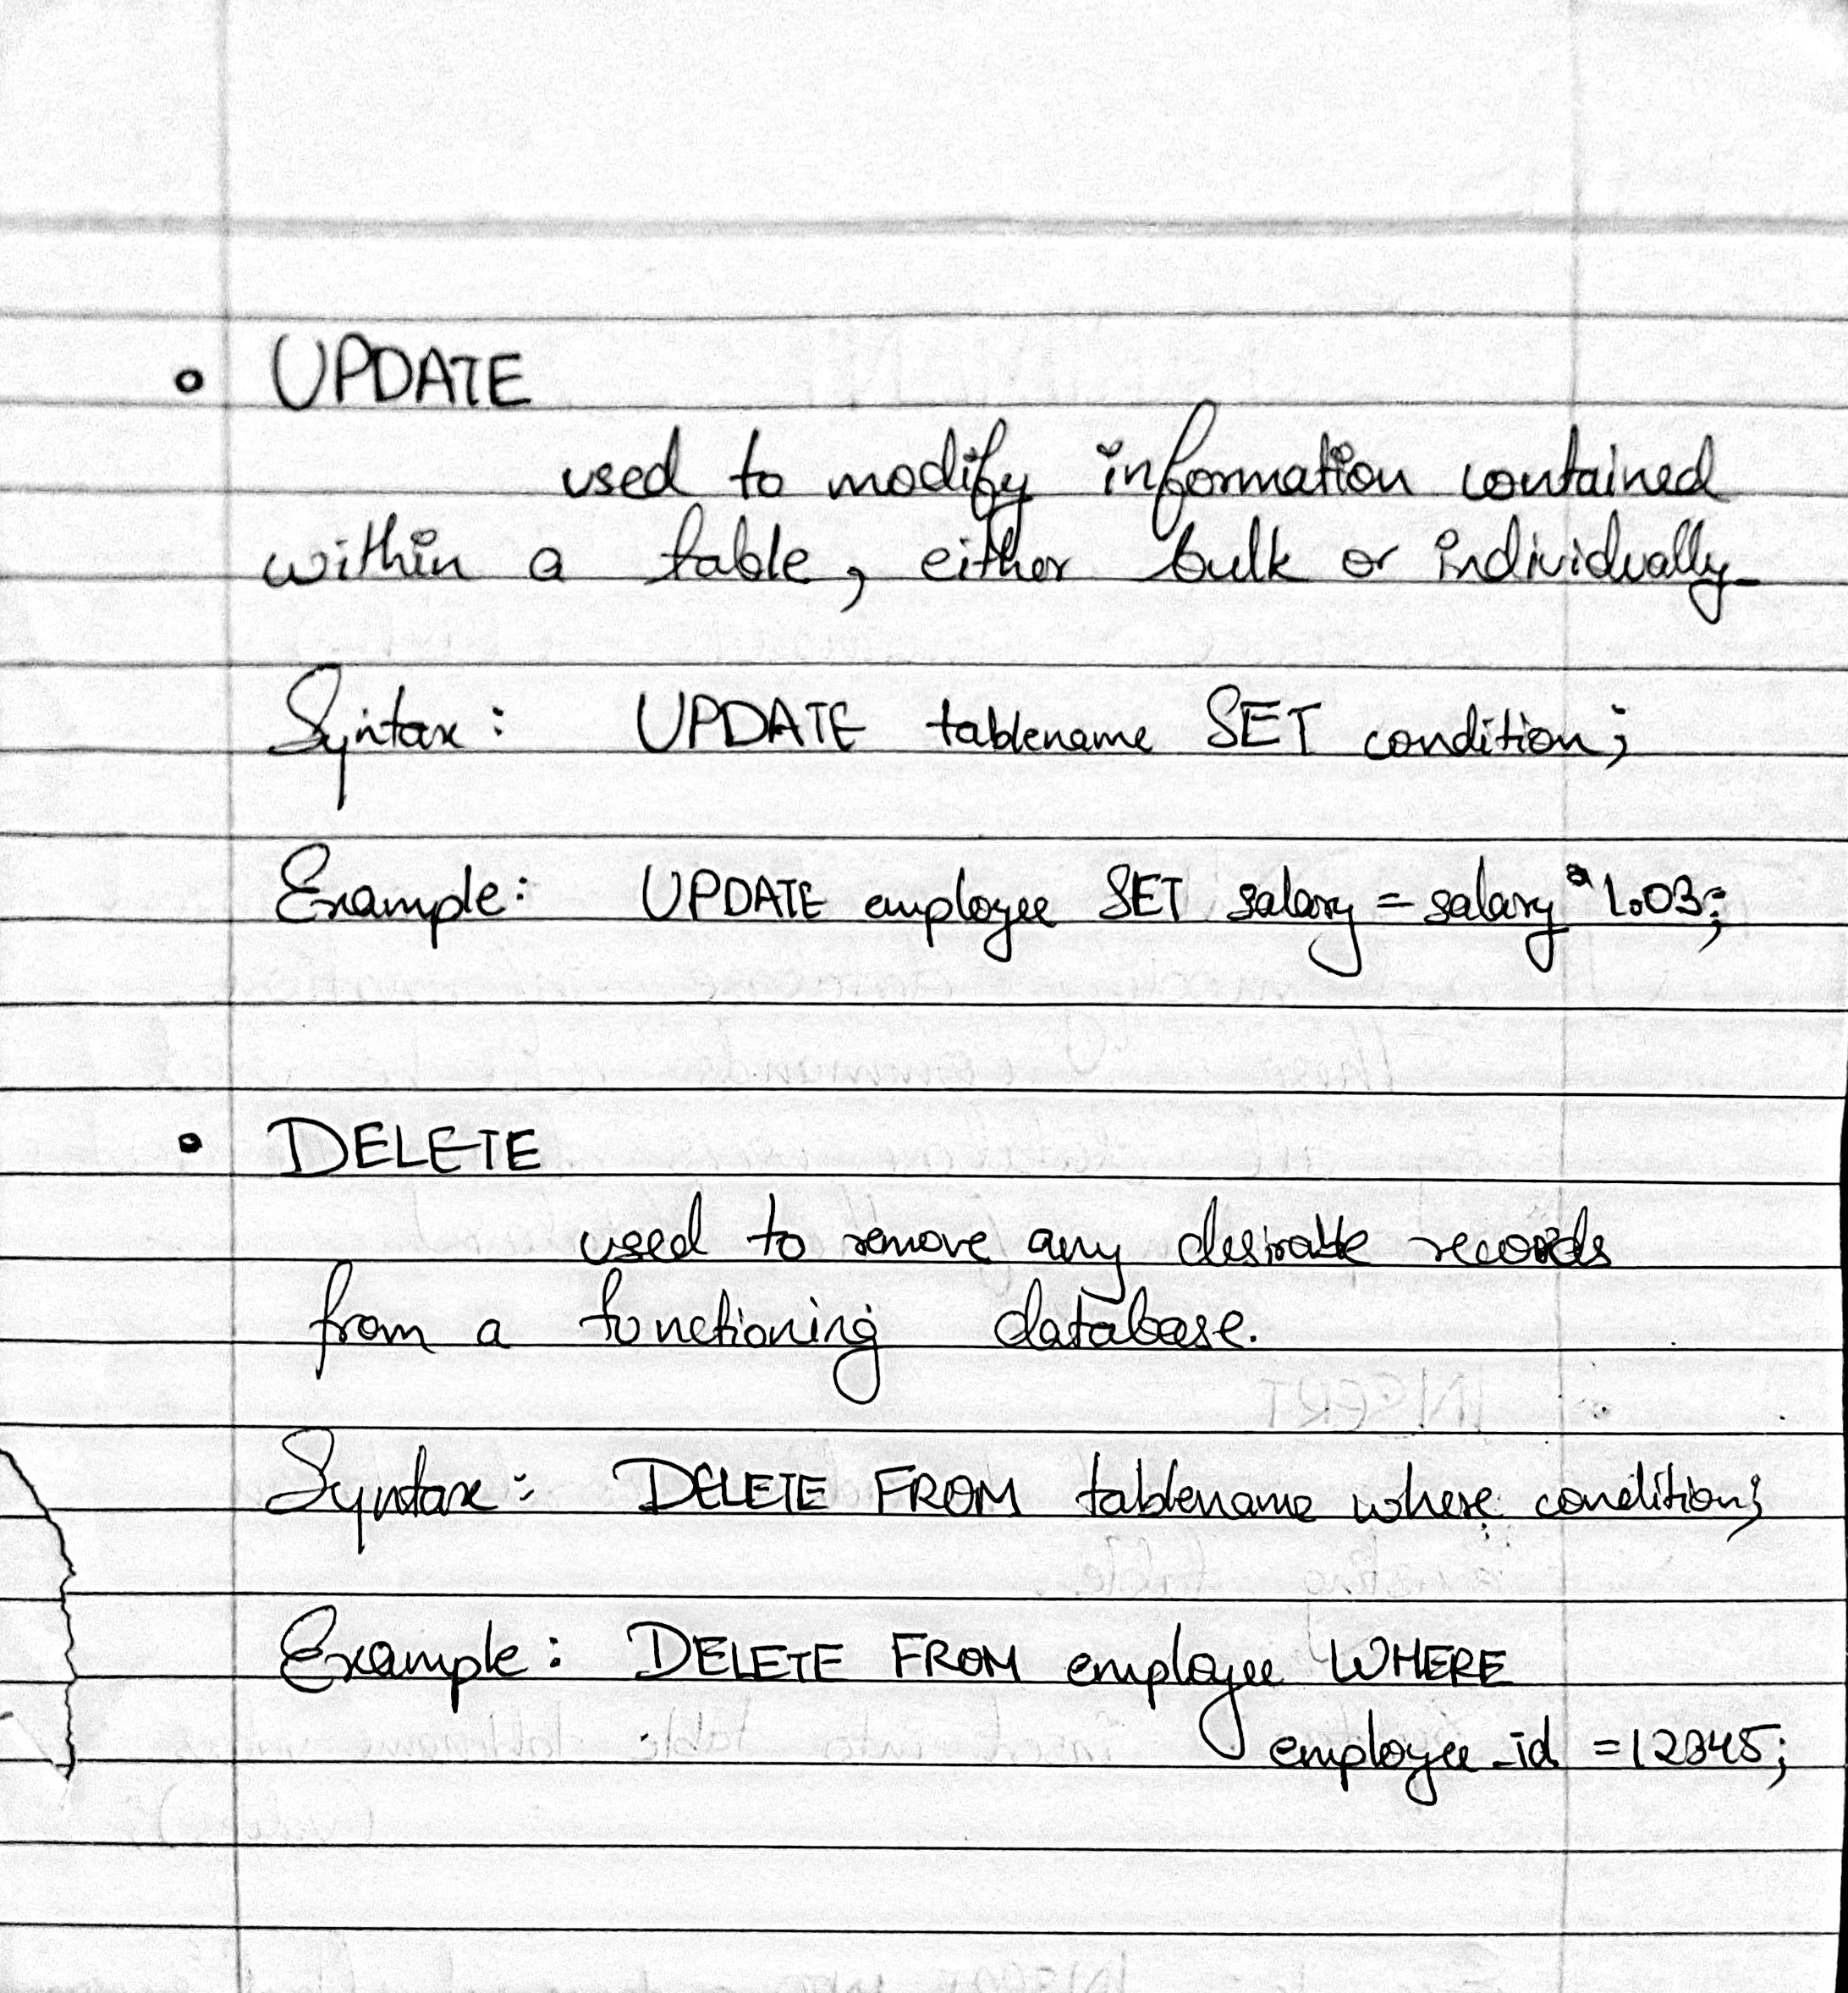 • UPDATE
used to modify information contained
within a table, either bulk or individually.
Syntax: UPDATE tablename SET condition;
Example: UPDATE employee SET salary = salary * 1.03;
• DELETE
used to remove any desirable records
from a functioning database.
Syntax: DELETE FROM tablename where condition;
Example: DELETE FROM employee WHERE
employee_id = 12345;